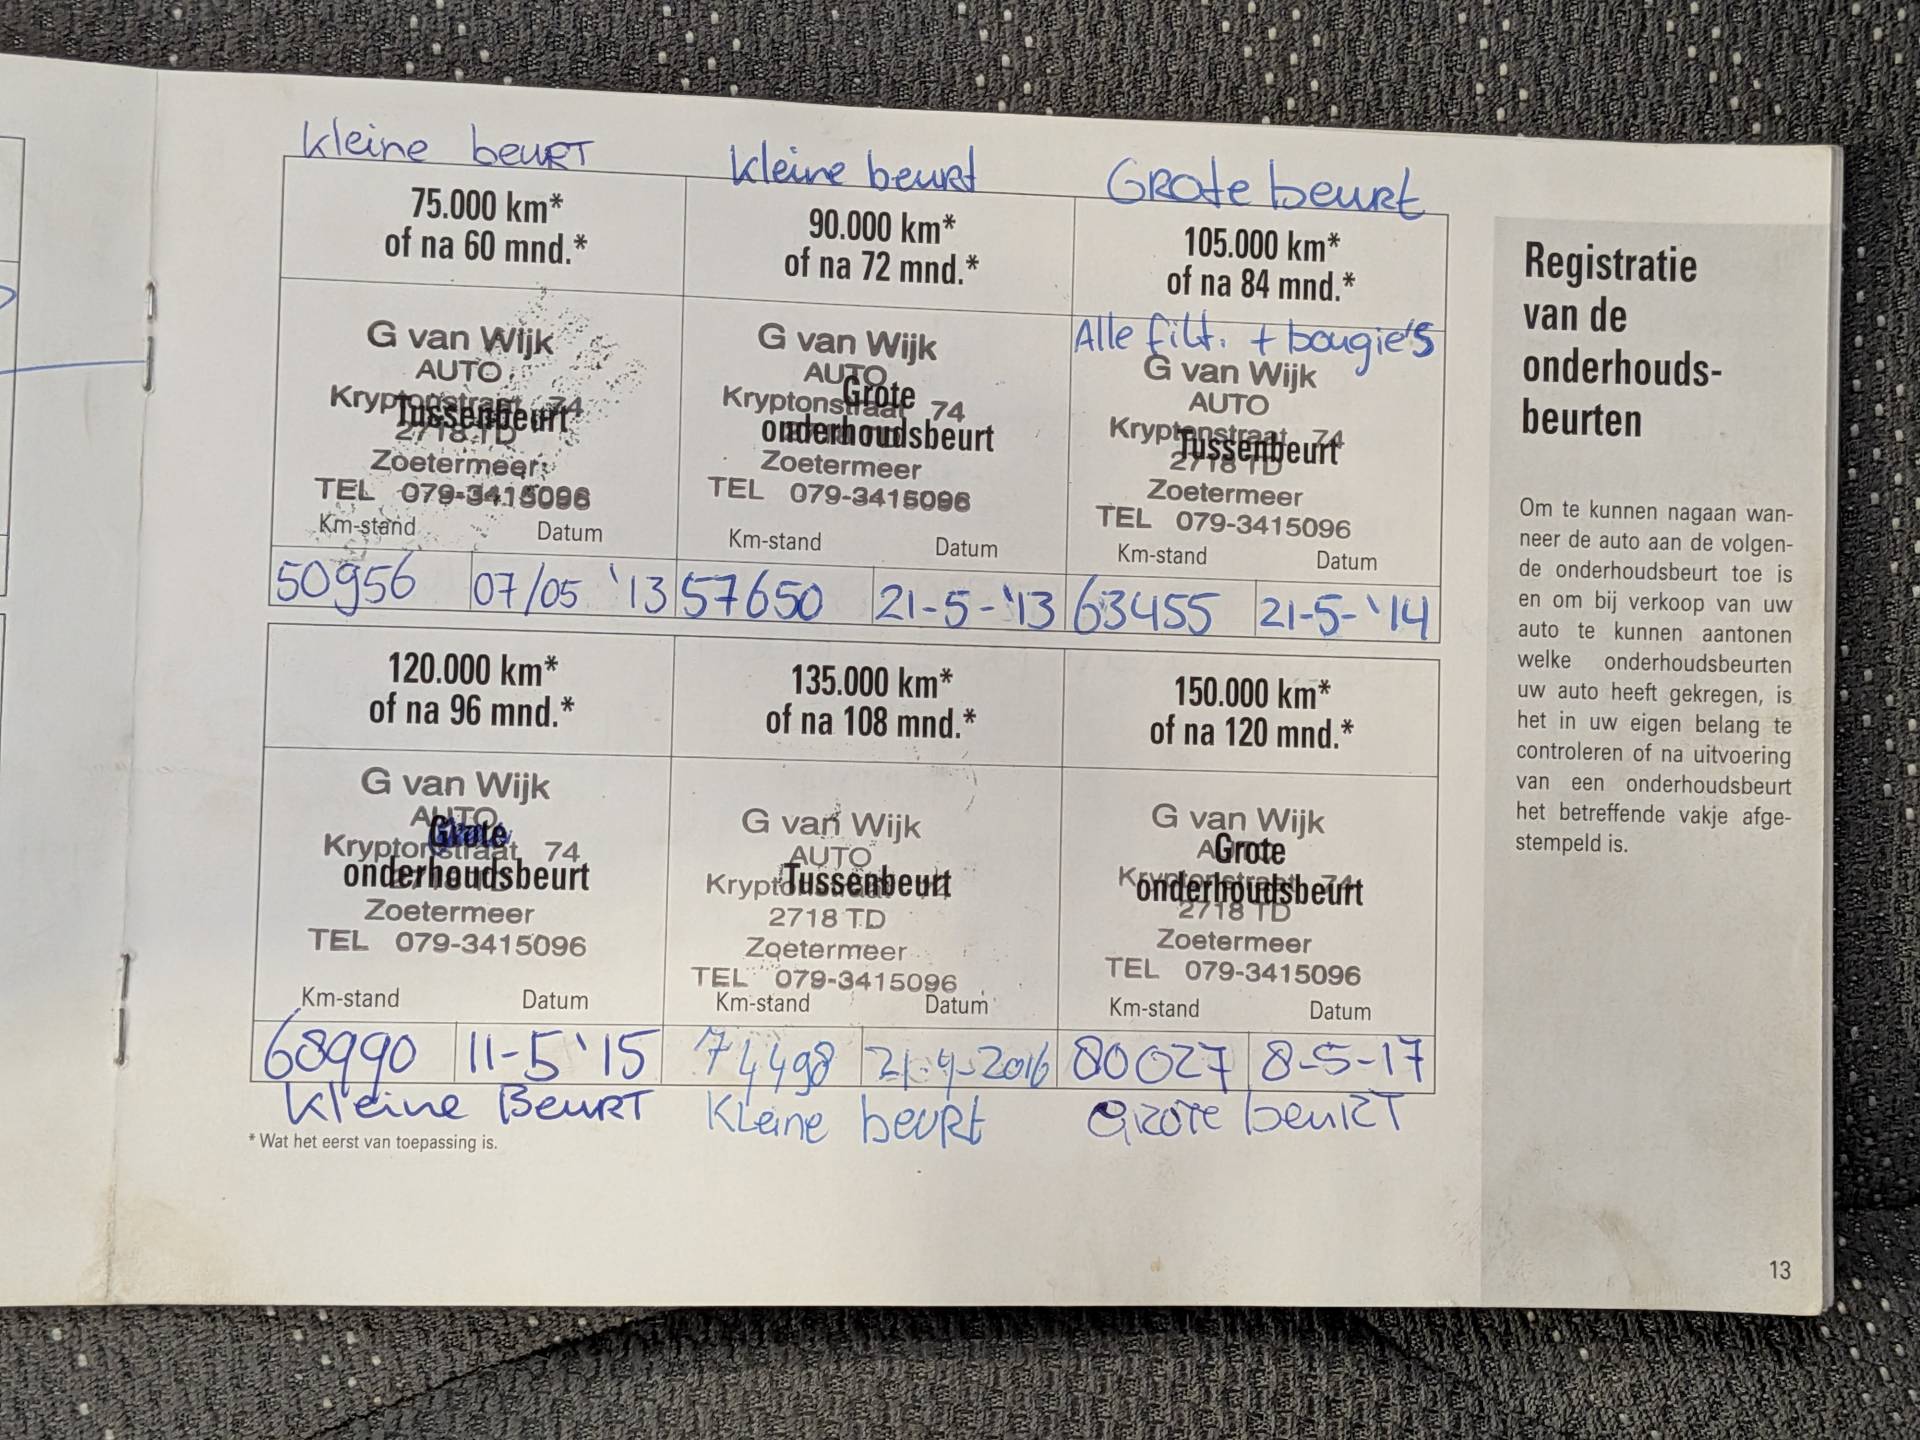 Kleine beurt
75.000 km*
of na 60 mnd.*
G van Wijk
AUTO
Kryptonstraat 74
Tussenbeurt
2718 TD
Zoetermeer
TEL 079-3415096
Km-stand Datum
50956 07/05 '13
Kleine beurt
90.000 km*
of na 72 mnd.*
G van Wijk
AUTO
Grote
Kryptonstraat 74
onderhoudsbeurt
Zoetermeer
TEL 079-3415096
Km-stand Datum
57650 21-5-'13
Grote beurt
105.000 km*
of na 84 mnd.*
Alle filt. + bougie's
G van Wijk
AUTO
Kryptonstraat 74
Tussenbeurt
2718 TD
Zoetermeer
TEL 079-3415096
Km-stand Datum
63455 21-5-'14
120.000 km*
of na 96 mnd.*
G van Wijk
AUTO
Grote
Kryptonstraat 74
onderhoudsbeurt
2718 TD
Zoetermeer
TEL 079-3415096
Km-stand Datum
68990 11-5'15
Kleine Beurt
135.000 km*
of na 108 mnd.*
G van Wijk
AUTO
Tussenbeurt
Kryptonstraat 74
2718 TD
Zoetermeer
TEL 079-3415096
Km-stand Datum
74498 21-4-2016
Kleine beurt
150.000 km*
of na 120 mnd.*
G van Wijk
AUTO
Grote
Kryptonstraat 74
onderhoudsbeurt
2718 TD
Zoetermeer
TEL 079-3415096
Km-stand Datum
80027 8-5-17
Grote beurt
* Wat het eerst van toepassing is.
Registratie
van de
onderhouds-
beurten
Om te kunnen nagaan wan-
neer de auto aan de volgen-
de onderhoudsbeurt toe is
en om bij verkoop van uw
auto te kunnen aantonen
welke onderhoudsbeurten
uw auto heeft gekregen, is
het in uw eigen belang te
controleren of na uitvoering
van een onderhoudsbeurt
het betreffende vakje afge-
stempeld is.
13